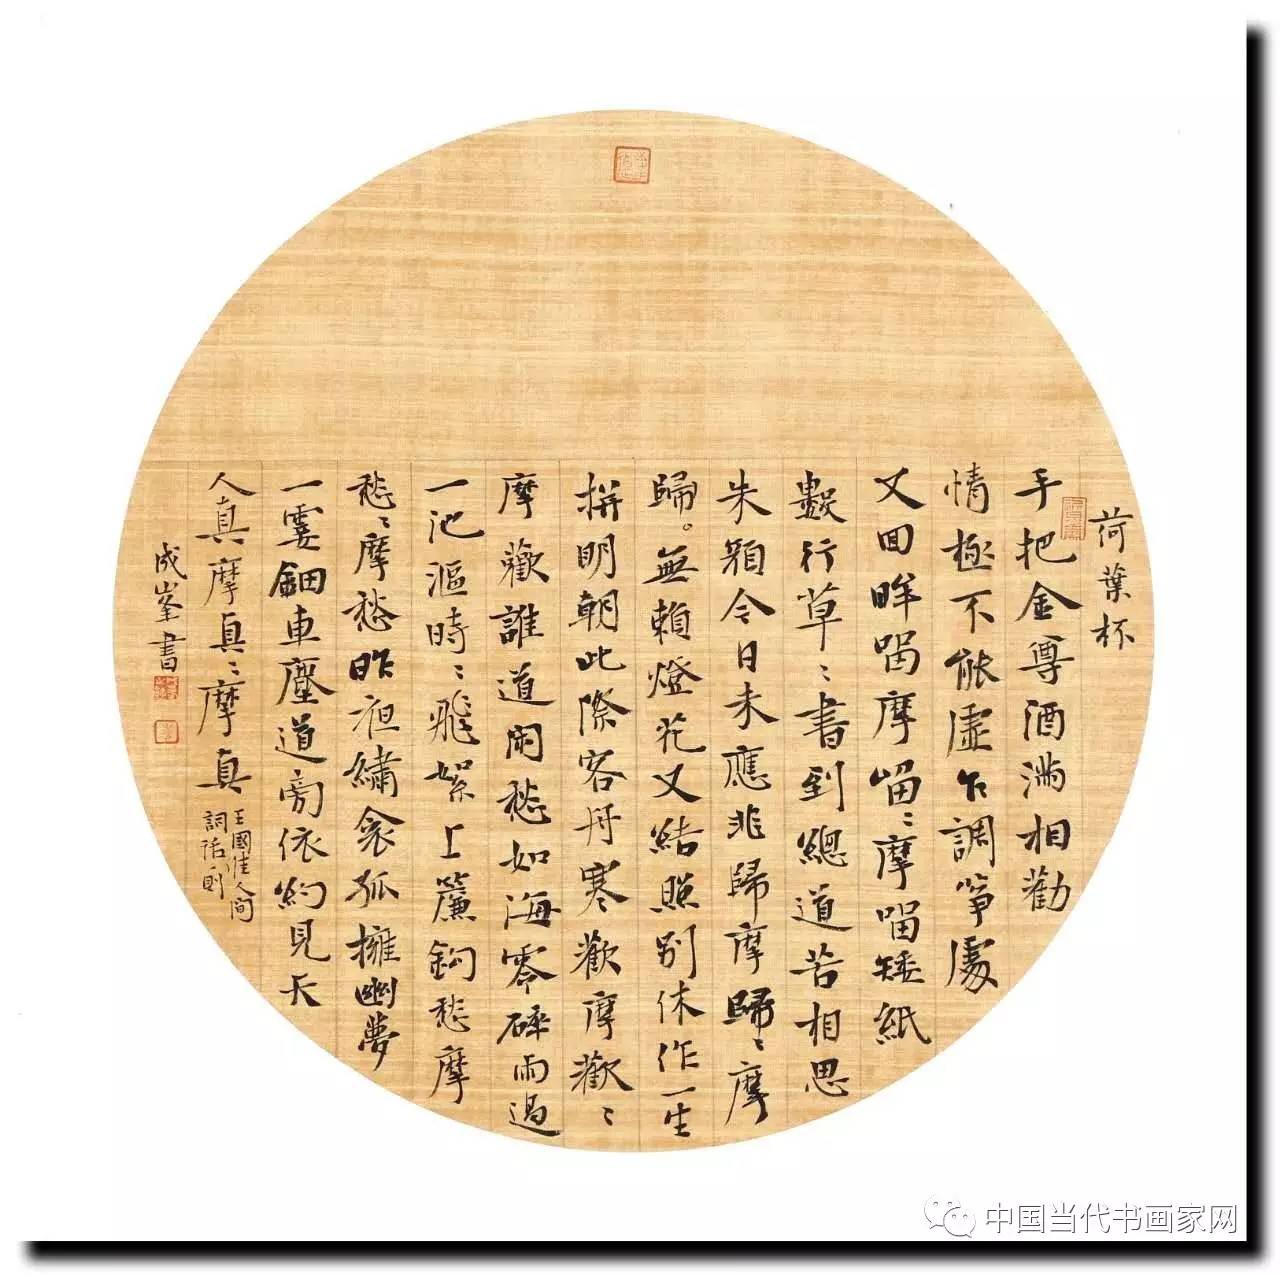 荷葉杯
手把金尊酒滿相勸
情極不能虛乍調箏處
又回眸留摩留〻摩留矮紙
數行草〻書到總道苦相思
朱顏今日未應非歸摩歸〻摩
歸。無賴燈花又結照別休作一生
拚明朝此際客舟寒歡摩歡〻
摩歡誰道閑愁如海零碎雨過
一池漚時〻飛絮上簾鉤愁摩
愁〻摩愁昨夜繡衾孤擁幽夢
一霎鈿車塵道旁依約見天
人真摩真〻摩真
王國維人間
詞話一則
成峯書
中国当代书画家网